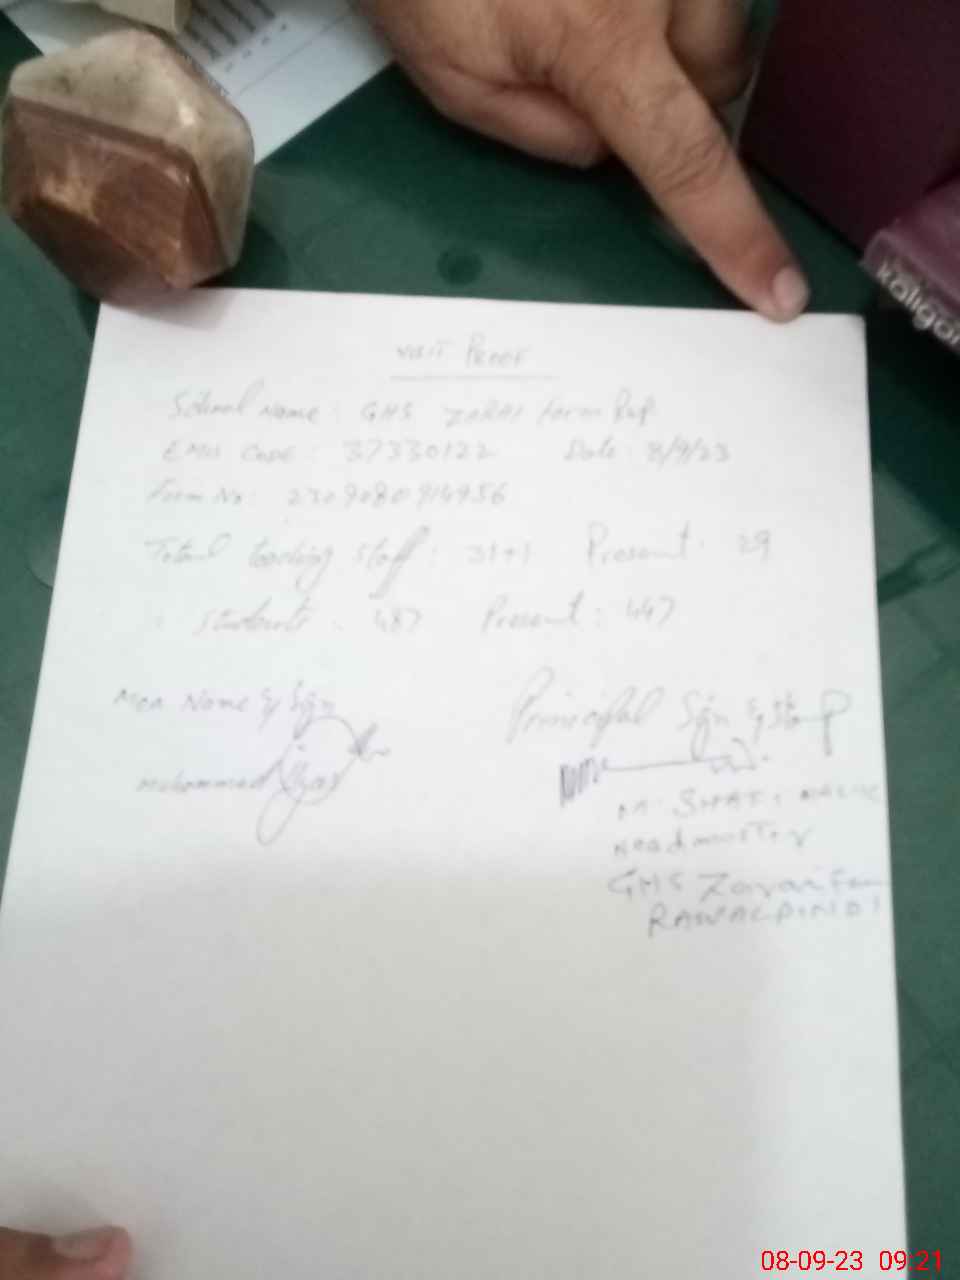 VISIT PROOF
School Name : GHS ZARAI Farm Rwp
EMIS CODE : 37330122 Date : 8/9/23
Form No : 230908091456
Total teaching staff : 31+1 Present : 29
students : 487 Present : 447
Mea Name & Sign
Principal Sign & Stamp
Muhammad Ilyas
Headmaster
GHS Zarai Farm
RAWALPINDI
kaligar
08-09-23 09:21